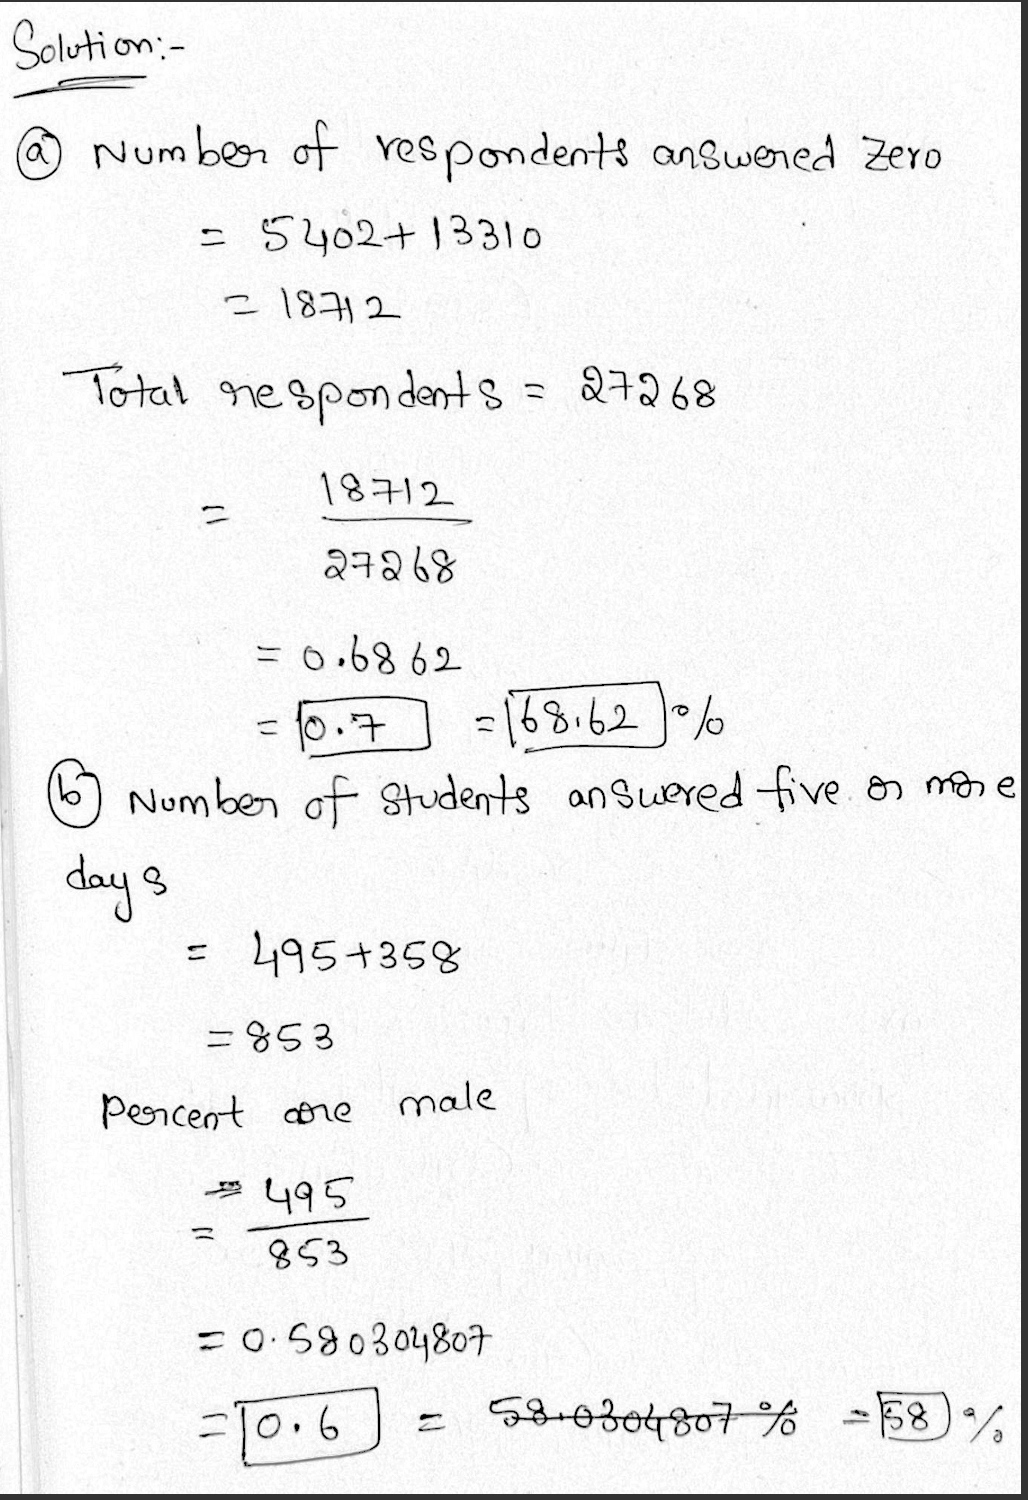 Solution:-
ⓐ Number of respondents answered zero
= 5402+13310
= 18712
Total respondents = 27268
= 18712
27268
= 0.6862
= 0.7 = 68.62 %
ⓑ Number of students answered five or more
days
= 495+358
= 853
Percent are male
= 495
853
= 0.580304807
= 0.6 = 58.0304807 % = 58 %